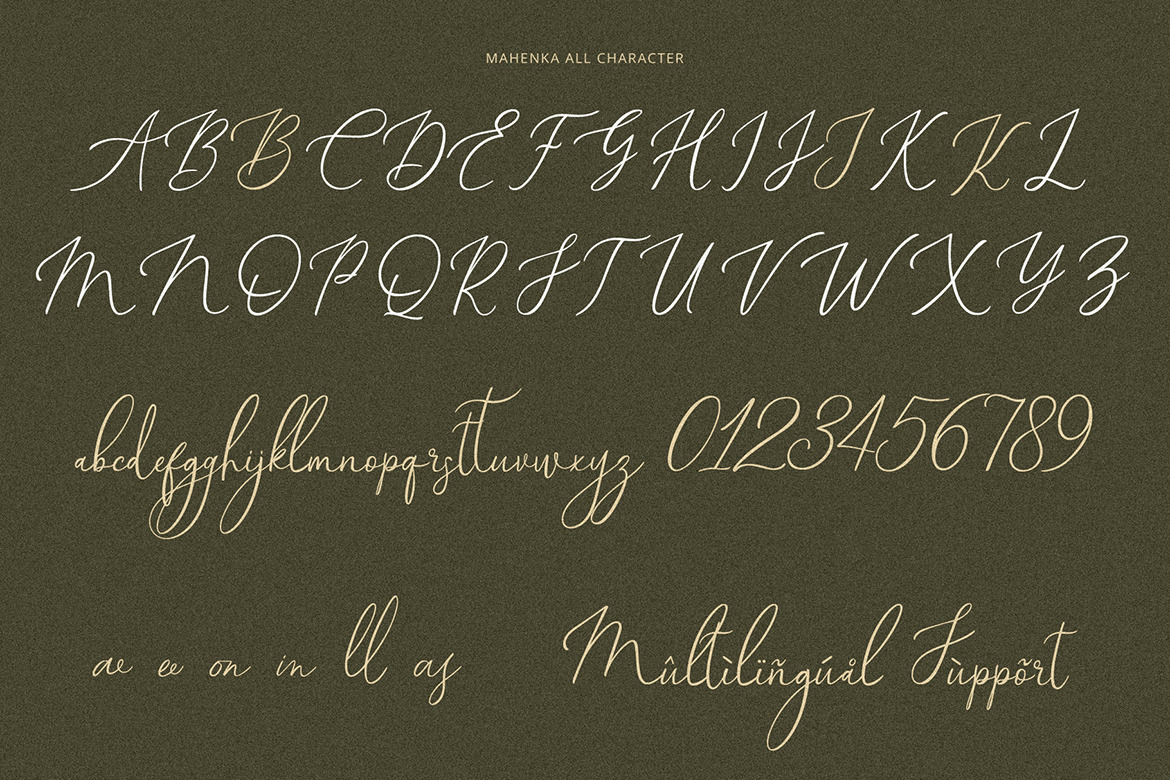 MAHENKA ALL CHARACTER
ABBCDEFGHIJJKKL
MNOPQRSTUVWXYZ
abcdefgghijklmnopqrsttuvwxyz 0123456789
ae ee on in ll as Mûltìlïñgúål Sùppõrt